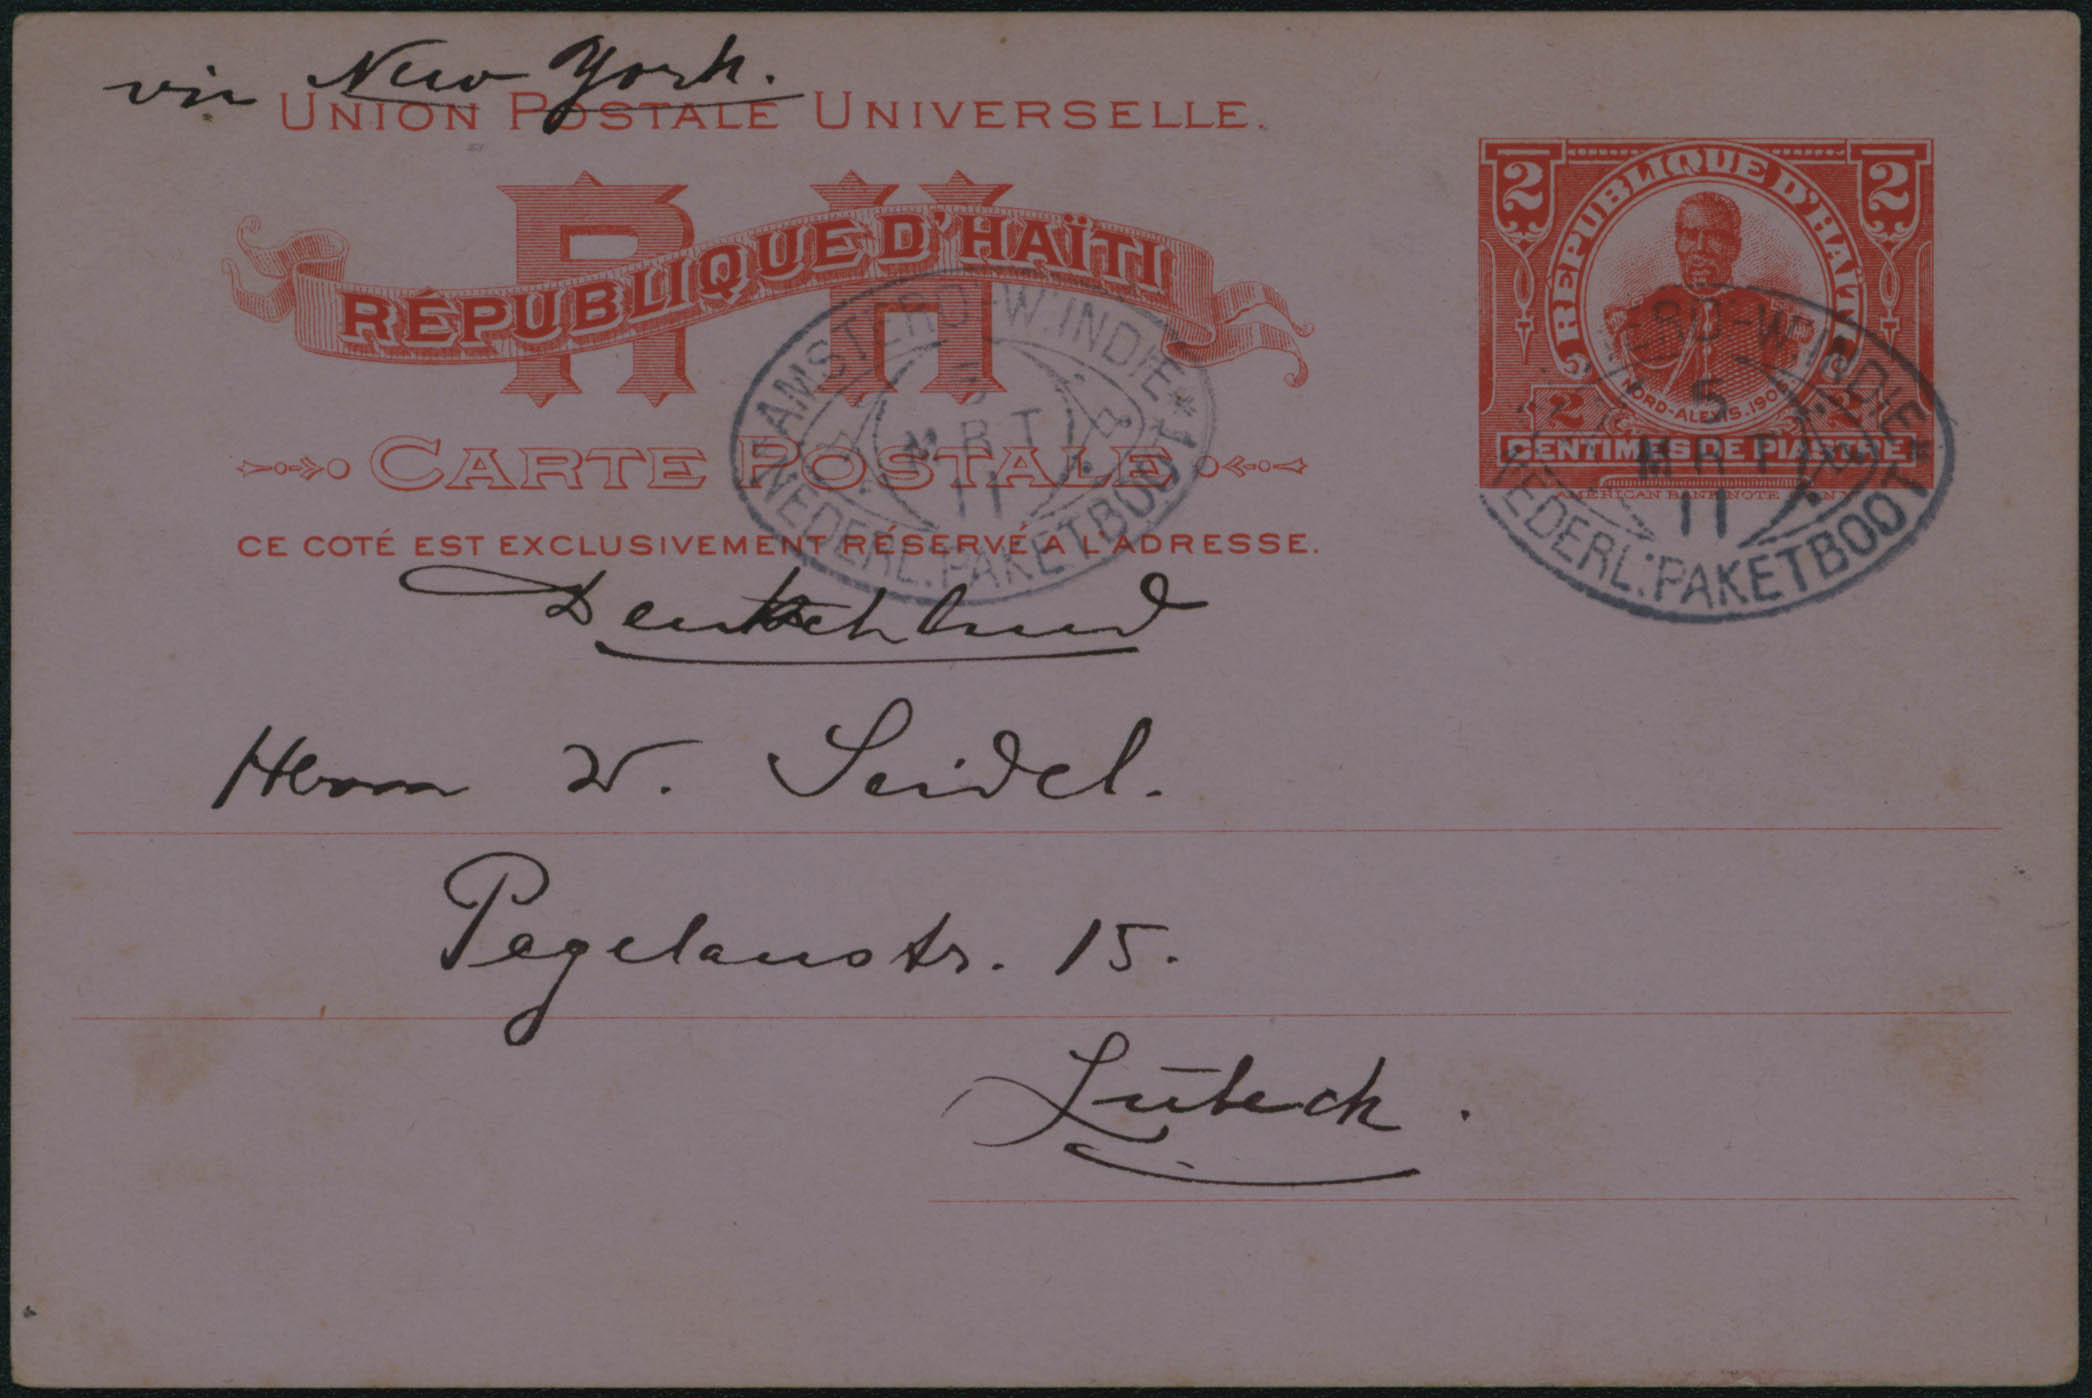 via New York.
UNION POSTALE UNIVERSELLE.
RH
RÉPUBLIQUE D'HAÏTI
CARTE POSTALE
CE COTÉ EST EXCLUSIVEMENT RÉSERVÉ A L'ADRESSE.
2 2
RÉPUBLIQUE D'HAÏTI
NORD-ALEXIS.
2 2
CENTIMES DE PIASTRE
AMERICAN BANK NOTE
AMSTERD.-W.INDIE*
5
MRT
11
NEDERL: PAKETBOOT
ERD.-W.INDIE*
5
MRT
11
NEDERL: PAKETBOOT
Deutschland
Herrn W. Seidel.
Pegelaustr. 15.
Lübeck.